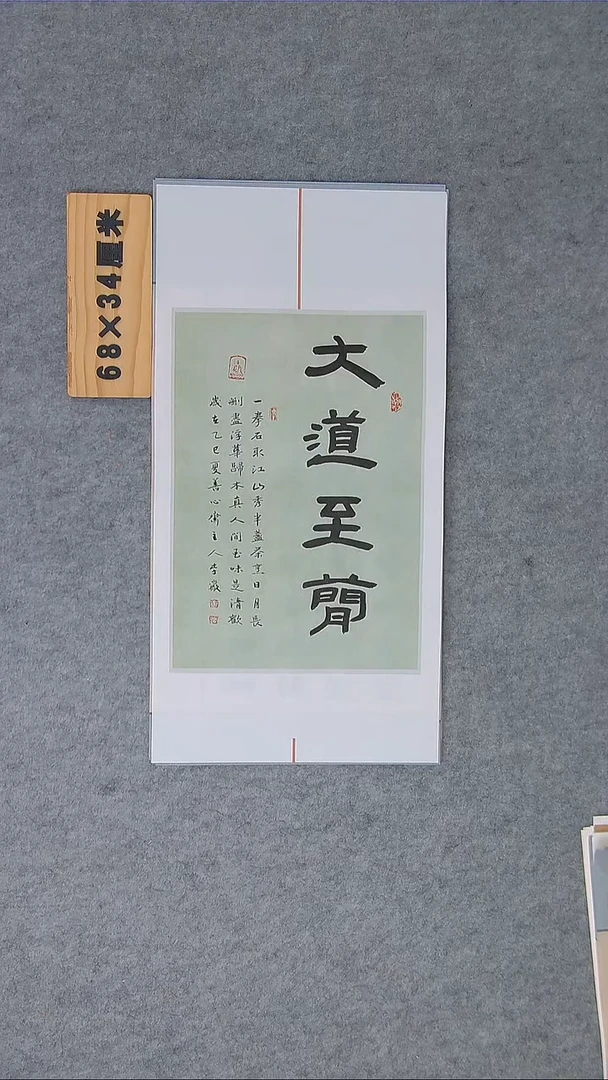 68×34厘米
大道至簡
一拳石取江山秀半盏茶烹日月長
删盡浮華歸本真人間至味是清歡
歲在乙巳夏善心齋主人李巖